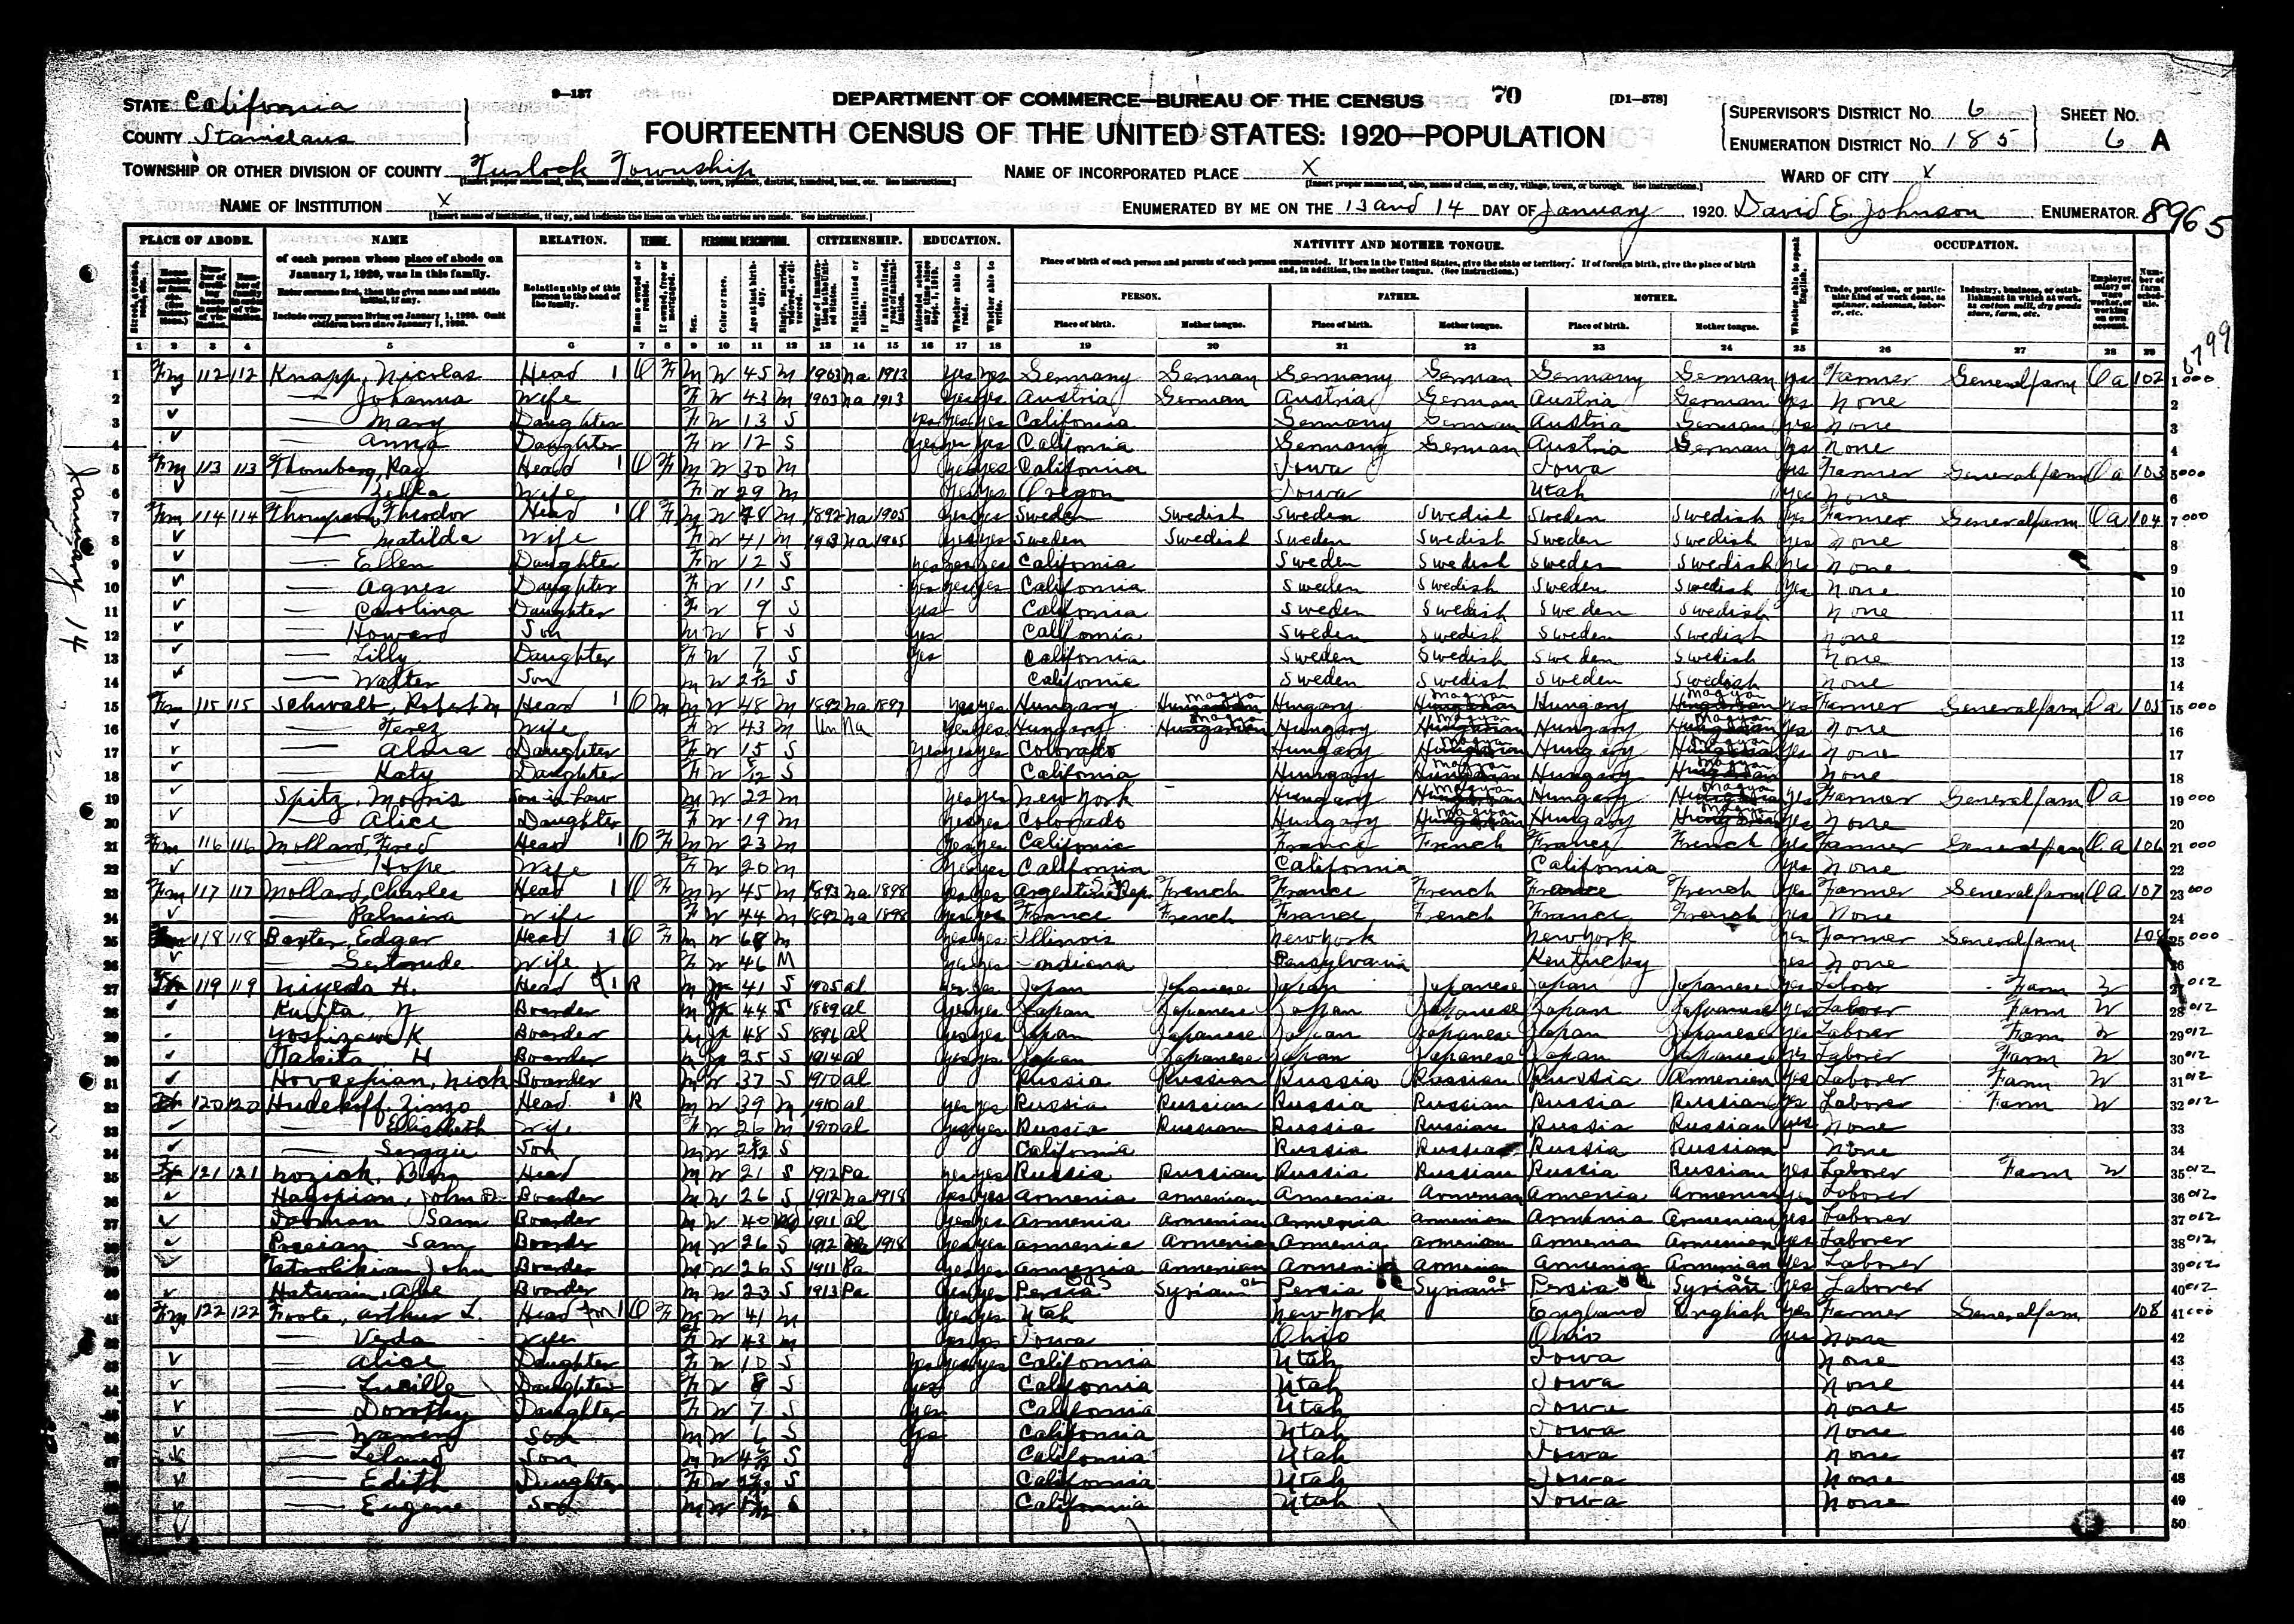 STATE California
9—137
DEPARTMENT OF COMMERCE—BUREAU OF THE CENSUS
70
[D1—578]
COUNTY Stanislaus
FOURTEENTH CENSUS OF THE UNITED STATES: 1920—POPULATION
SUPERVISOR'S DISTRICT NO. 6
SHEET NO.
ENUMERATION DISTRICT NO. 185
6 A
TOWNSHIP OR OTHER DIVISION OF COUNTY Turlock Township
NAME OF INCORPORATED PLACE X
WARD OF CITY X
NAME OF INSTITUTION X
ENUMERATED BY ME ON THE 13 and 14 DAY OF January 1920. David E. Johnson ENUMERATOR.
8965
6799
January 14
PLACE OF ABODE. NAME RELATION. TENURE. PERSONAL DESCRIPTION. CITIZENSHIP. EDUCATION. NATIVITY AND MOTHER TONGUE. OCCUPATION.
of each person whose place of abode on January 1, 1920, was in this family.
Enter surname first, then the given name and middle initial, if any.
Include every person living on January 1, 1920. Omit children born since January 1, 1920.
Relationship of this person to the head of the family.
Place of birth of each person and parents of each person enumerated. If born in the United States, give the state or territory. If of foreign birth, give the place of birth and, in addition, the mother tongue. (See instructions.)
PERSON. FATHER. MOTHER.
Place of birth. Mother tongue. Place of birth. Mother tongue. Place of birth. Mother tongue.
Whether able to speak English.
1 2 3 4 5 6 7 8 9 10 11 12 13 14 15 16 17 18 19 20 21 22 23 24 25 26 27 28 29
1 Fm 112 112 Knapp, Nicolas Head 1 O F M W 45 M 1903 Na 1913 yes yes Germany German Germany German Germany German yes Farmer General farm Oa 102 1 000
2 — Johanna Wife F W 43 M 1903 Na 1913 yes yes Austria German Austria German Austria German yes None 2
3 — Mary Daughter F W 13 S yes yes yes California Germany German Austria German yes None 3
4 — Anna Daughter F W 12 S yes yes yes California Germany German Austria German yes None 4
5 Fm 113 113 Thornberg, Ray Head 1 O F M W 30 M yes yes California Iowa Iowa yes Farmer General farm Oa 103 5 000
6 — Zella Wife F W 29 M yes yes Oregon Iowa Utah yes None 6
7 Fm 114 114 Thompson, Theodor Head 1 O F M W 48 M 1892 Na 1905 yes yes Sweden Swedish Sweden Swedish Sweden Swedish yes Farmer General farm Oa 104 7 000
8 — Matilda Wife F W 41 M 1903 Na 1905 yes yes Sweden Swedish Sweden Swedish Sweden Swedish yes None 8
9 — Ellen Daughter F W 12 S yes yes yes California Sweden Swedish Sweden Swedish yes None 9
10 — Agnes Daughter F W 11 S yes yes yes California Sweden Swedish Sweden Swedish yes None 10
11 — Carolina Daughter F W 9 S yes California Sweden Swedish Sweden Swedish None 11
12 — Howard Son M W 8 S yes California Sweden Swedish Sweden Swedish None 12
13 — Lilly Daughter F W 7 S yes California Sweden Swedish Sweden Swedish None 13
14 — Walter Son M W S California Sweden Swedish Sweden Swedish None 14
15 Fm 115 115 Schwalb, Robert M Head 1 O M M W 48 M 1892 Na 1897 yes yes Hungary Magyar Hungary Magyar Hungary Magyar yes Farmer General farm Oa 105 15 000
16 — Terez Wife F W 43 M Un Na yes yes Hungary Magyar Hungary Magyar Hungary Magyar yes None 16
17 — Alma Daughter F W 15 S yes yes yes Colorado Hungary Magyar Hungary Magyar yes None 17
18 — Katy Daughter F W S California Hungary Magyar Hungary Magyar None 18
19 Spitz, Morris Son in Law M W 22 M yes yes New York Hungary Magyar Hungary Magyar yes Farmer General farm Oa 19 000
20 — Alice Daughter F W 19 M yes yes Colorado Hungary Magyar Hungary Magyar yes None 20
21 Fm 116 116 Mollard, Fred Head 1 O F M W 23 M yes yes California France French France French yes Farmer General farm Oa 106 21 000
22 — Hope Wife F W 20 M yes yes California California California yes None 22
23 Fm 117 117 Mollard, Charles Head 1 O F M W 45 M 1893 Na 1898 yes yes Argentina Rep. French France French France French yes Farmer General farm Oa 107 23 000
24 — Palmira Wife F W 44 M 1892 Na 1898 yes yes France French France French France French yes None 24
25 118 118 Baxter, Edgar Head 1 O F M W 68 M yes yes Illinois New York New York yes Farmer General farm 25 000
26 — Gertrude Wife F W 46 M yes yes Indiana Pensylvania Kentucky yes None 26
27 119 119 Niyeda H. Head 1 R M Jp 41 S 1905 al yes yes Japan Japanese Japan Japanese Japan Japanese yes Laborer Farm W 27 012
28 Kurita, N Boarder M Jp 44 S 1889 al yes yes Japan Japanese Japan Japanese Japan Japanese yes Laborer Farm W 28 012
29 Yoshizawa K Boarder M Jp 48 S 1896 al yes yes Japan Japanese Japan Japanese Japan Japanese yes Laborer Farm W 29 012
30 H Boarder M Jp 25 S 1914 al yes yes Japan Japanese Japan Japanese Japan Japanese yes Laborer Farm W 30 012
31 Hovsepian, Nick Boarder M W 37 S 1910 al Russia Russian Russia Russian Russia Armenian yes Laborer Farm W 31 012
32 120 120 Hudekoff, Zinzo Head 1 R M W 39 M 1910 al yes yes Russia Russian Russia Russian Russia Russian yes Laborer Farm W 32 012
33 — Elisabeth Wife F W 26 M 1910 al yes yes Russia Russian Russia Russian Russia Russian yes None 33
34 — Serggie Son M W S California Russia Russian Russia Russian None 34
35 121 121 Nozick, Ben Head M W 21 S 1912 Pa yes yes Russia Russian Russia Russian Russia Russian yes Laborer Farm W 35 012
36 Hagopian, John Boarder M W 26 S 1912 Na 1918 yes yes Armenia Armenian Armenia Armenian Armenia Armenian yes Laborer 36 012
37 Dorman Sam Boarder M W 40 1911 al yes yes Armenia Armenian Armenia Armenian Armenia Armenian yes Laborer 37 012
38 Sam Boarder M W 26 S 1912 1918 yes yes Armenia Armenian Armenia Armenian Armenia Armenian yes Laborer 38 012
39 John Boarder M W 26 S 1911 Pa yes yes Armenia Armenian Armenia Armenian Armenia Armenian yes Laborer 39 012
40 Abe Boarder M W 23 S 1913 Pa yes yes Persia Syrian Persia Syrian Persia Syrian yes Laborer 40 012
41 Fm 122 122 Foote, Arthur L. Head Fm 1 O F M W 41 M yes yes Utah New York England English yes Farmer General farm 108 41 000
42 — Veda Wife F W 43 M yes yes Iowa Ohio Ohio yes None 42
43 — Alice Daughter F W 10 S yes yes yes California Utah Iowa None 43
44 — Lucille Daughter F W 8 S yes California Utah Iowa None 44
45 — Dorothy Daughter F W 7 S yes California Utah Iowa None 45
46 — Warren Son M W 6 S yes California Utah Iowa None 46
47 — Leland Son M W S California Utah Iowa None 47
48 — Edith Daughter F W S California Utah Iowa None 48
49 — Eugene Son M W S California Utah Iowa None 49
50